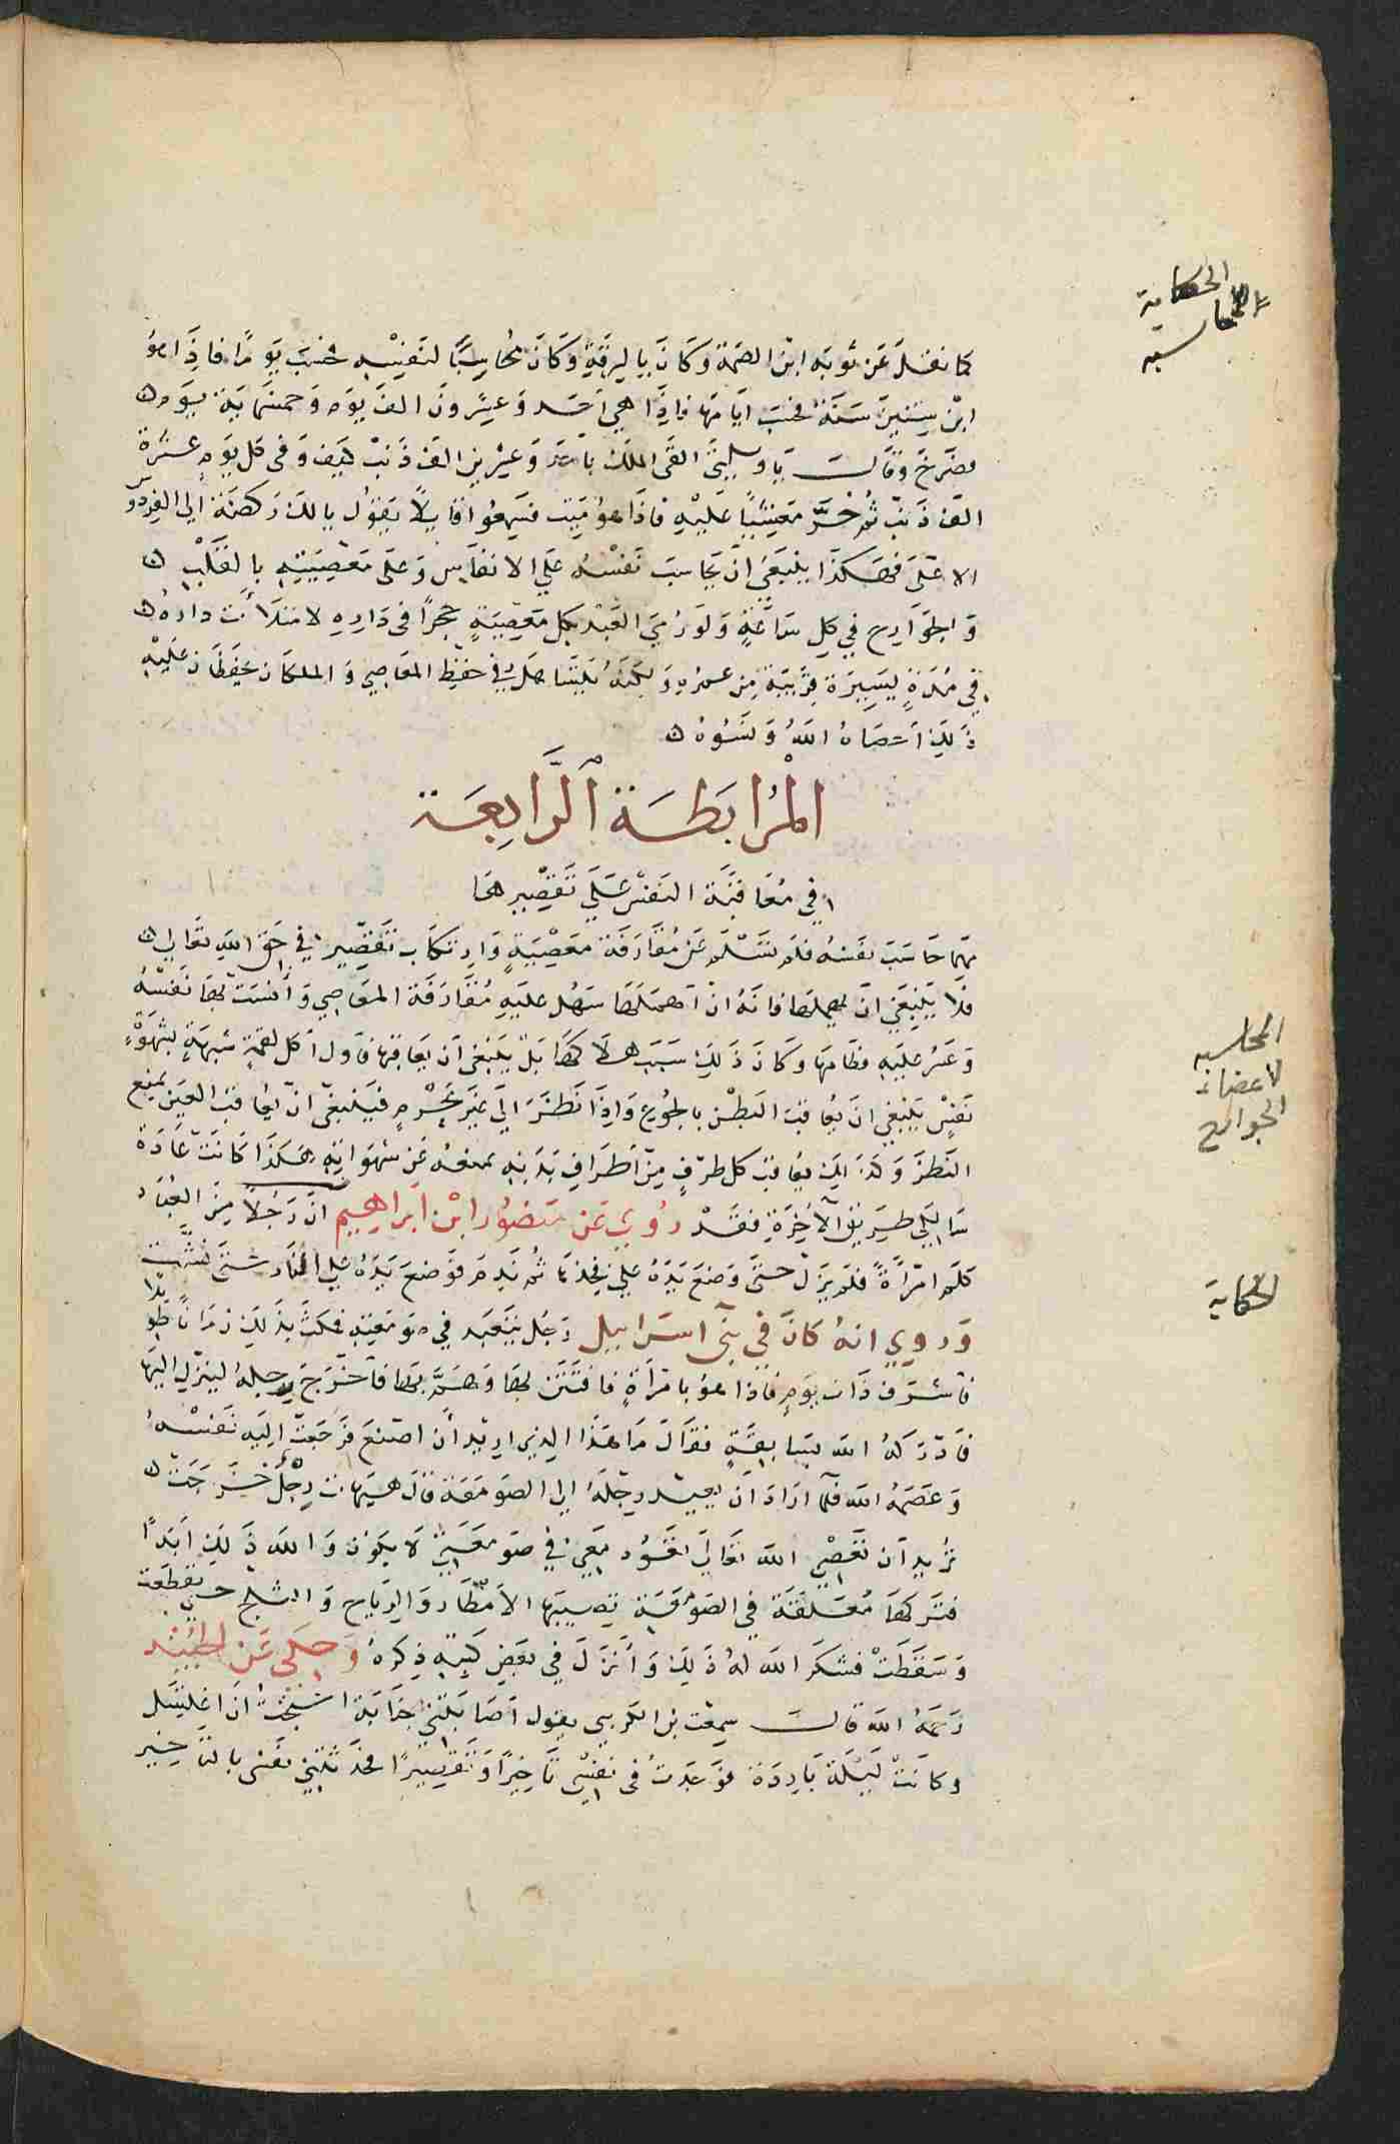 كما نقل عن توبه ابن الصمة وكان بالرقة وكان محاسبًا لنفسه فحسب يومًا فاذا هو
ابن ستين سنة فحسب ايامها فاذا هي احد وعشرون الف يوم وخمسماية يوم
فصرخ وقال يا ويلتى القى الملك باحد وعشرين الف ذنب كيف وفى كل يوم عشرة
الف ذنب ثم خر مغشيًا عليه فاذا هو ميت فسمعوا قايلًا يقول يالك ركضة الى الفردوس
الاعلى فهكذا ينبغى ان يحاسب نفسه على الانفاس وعلى معصيته بالقلب
والجوارح في كل ساعة ولو رمى العبد بكل معصية حجرًا فى داره لامتلأت داره
في مدة يسيرة قريبة من عمره ولكنه يتساهل في حفظ المعاصي والملكان يحفظان عليه
ذلك احصاه الله ونسوه
المرابطة الرابعة
في معاقبة النفس على تقصيرها
مهما حاسب نفسه فلم تسلم عن مقارفة معصية وارتكاب تقصير في حق الله تعالى
فلا ينبغي ان يهملها فانه ان اهملها سهل عليه مقارفة المعاصي وأنست بها نفسه
وعسر عليه فطامها وكان ذلك سبب هلاكها بل ينبغي ان يعاقبها فاول اكل لقمة شبهة بشهوة
نفس ينبغي ان يعاقب البطن بالجوع واذا نظر الى غير محرم فينبغى ان يعاقب العين بمنع
النظر وكذلك يعاقب كل طرف من اطراف بدنه بمنعه عن شهواته هكذا كانت عادة
سالكي طريق الآخرة فقد روي عن منصور ابن ابراهيم ان رجلًا من العباد
كلم امرأة فلم يزل حتى وضع يده على فخذها ثم ندم فوضع يده على النار حتى نشت
وروي انه كان في بنى اسرايل رجل يتعبد في صومعته فمكث بذلك زمانًا طويلًا
فاشرف ذات يوم فاذا هو بامرأة فافتتن بها وهم بها فاخرج رجله لينزل اليها
فادركه الله بسابقة فقال ما هذا الذي اريد أن اصنع فرجعت إليه نفسه
وعصمه الله فلما اراد ان يعيد رجله الى الصومعة قال هيهات رجل خرجت
تريد ان تعصي الله تعالى تعود معي في صومعتي لا يكون والله ذلك ابدًا
فتركها معلقة في الصومعة تصيبها الامطار والرياح والثلج حتى تقطعت
وسقطت فشكر الله له ذلك وأنزل في بعض كتبه ذكره وحكى عن الجنيد
رحمه الله قال سمعت بن الكريبي يقول اصابتني جنابة احتجت أن اغتسل
وكانت ليلة باردة فوجدت في نفسي تاخيرًا وتقصيرًا فحدثتني نفسى بالتاخير
الحكاية
للمحاسبه
المحاسبه
لاعضاء
الجوارح
الحكاية